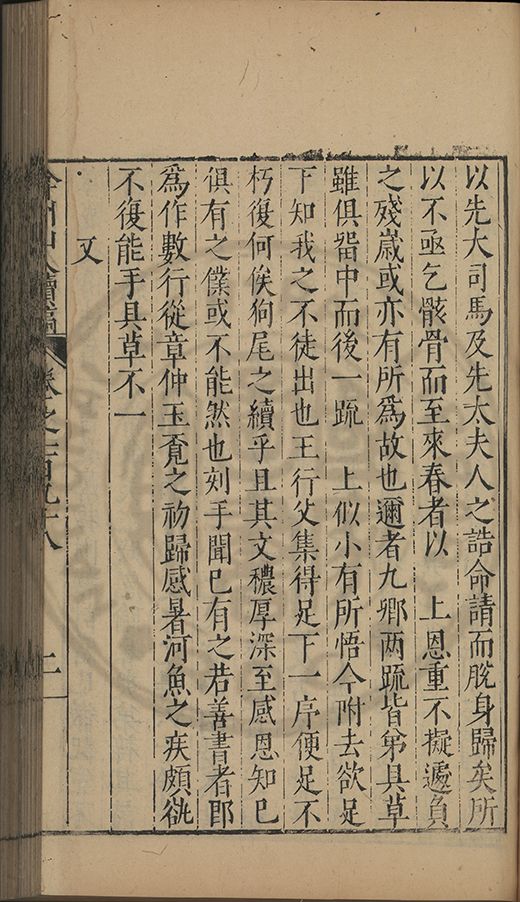 以先大司馬及先太夫人之誥命請而脫身歸矣所
以不亟乞骸骨而至來春者以　上恩重不擬遽負
之殘歲或亦有所為故也邇者九卿两疏皆弟具草
雖俱畱中而後一疏　上似小有所悟今附去欲足
下知我之不徒出也王行父集得足下一序便足不
朽復何俟狗尾之續乎且其文穠厚深至感恩知己
俱有之僕或不能然也刻手聞已有之若善書者郎
為作數行從章仲玉覔之初歸感暑河魚之疾頗
不復能手具草不一
又
弇州山人續稿　卷之一百九十八　二